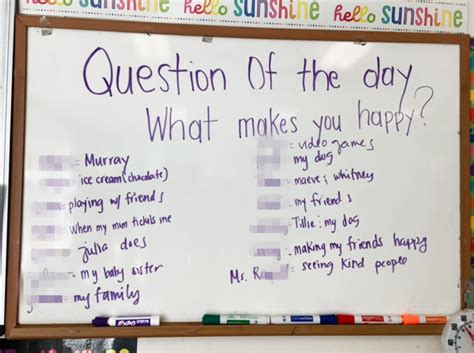 sunshine hello sunshine hello sunshine hello sunshine
Question Of the day
What makes you happy?
Murray
ice cream (chocolate)
playing w/ friends
When my mum tickls me
Julia does
my baby sister
my family
video games
my dog
maeve ; whitney
my friends
Tillie ; my dog
making my friends happy
Ms. R : seeing kind people
EXPO